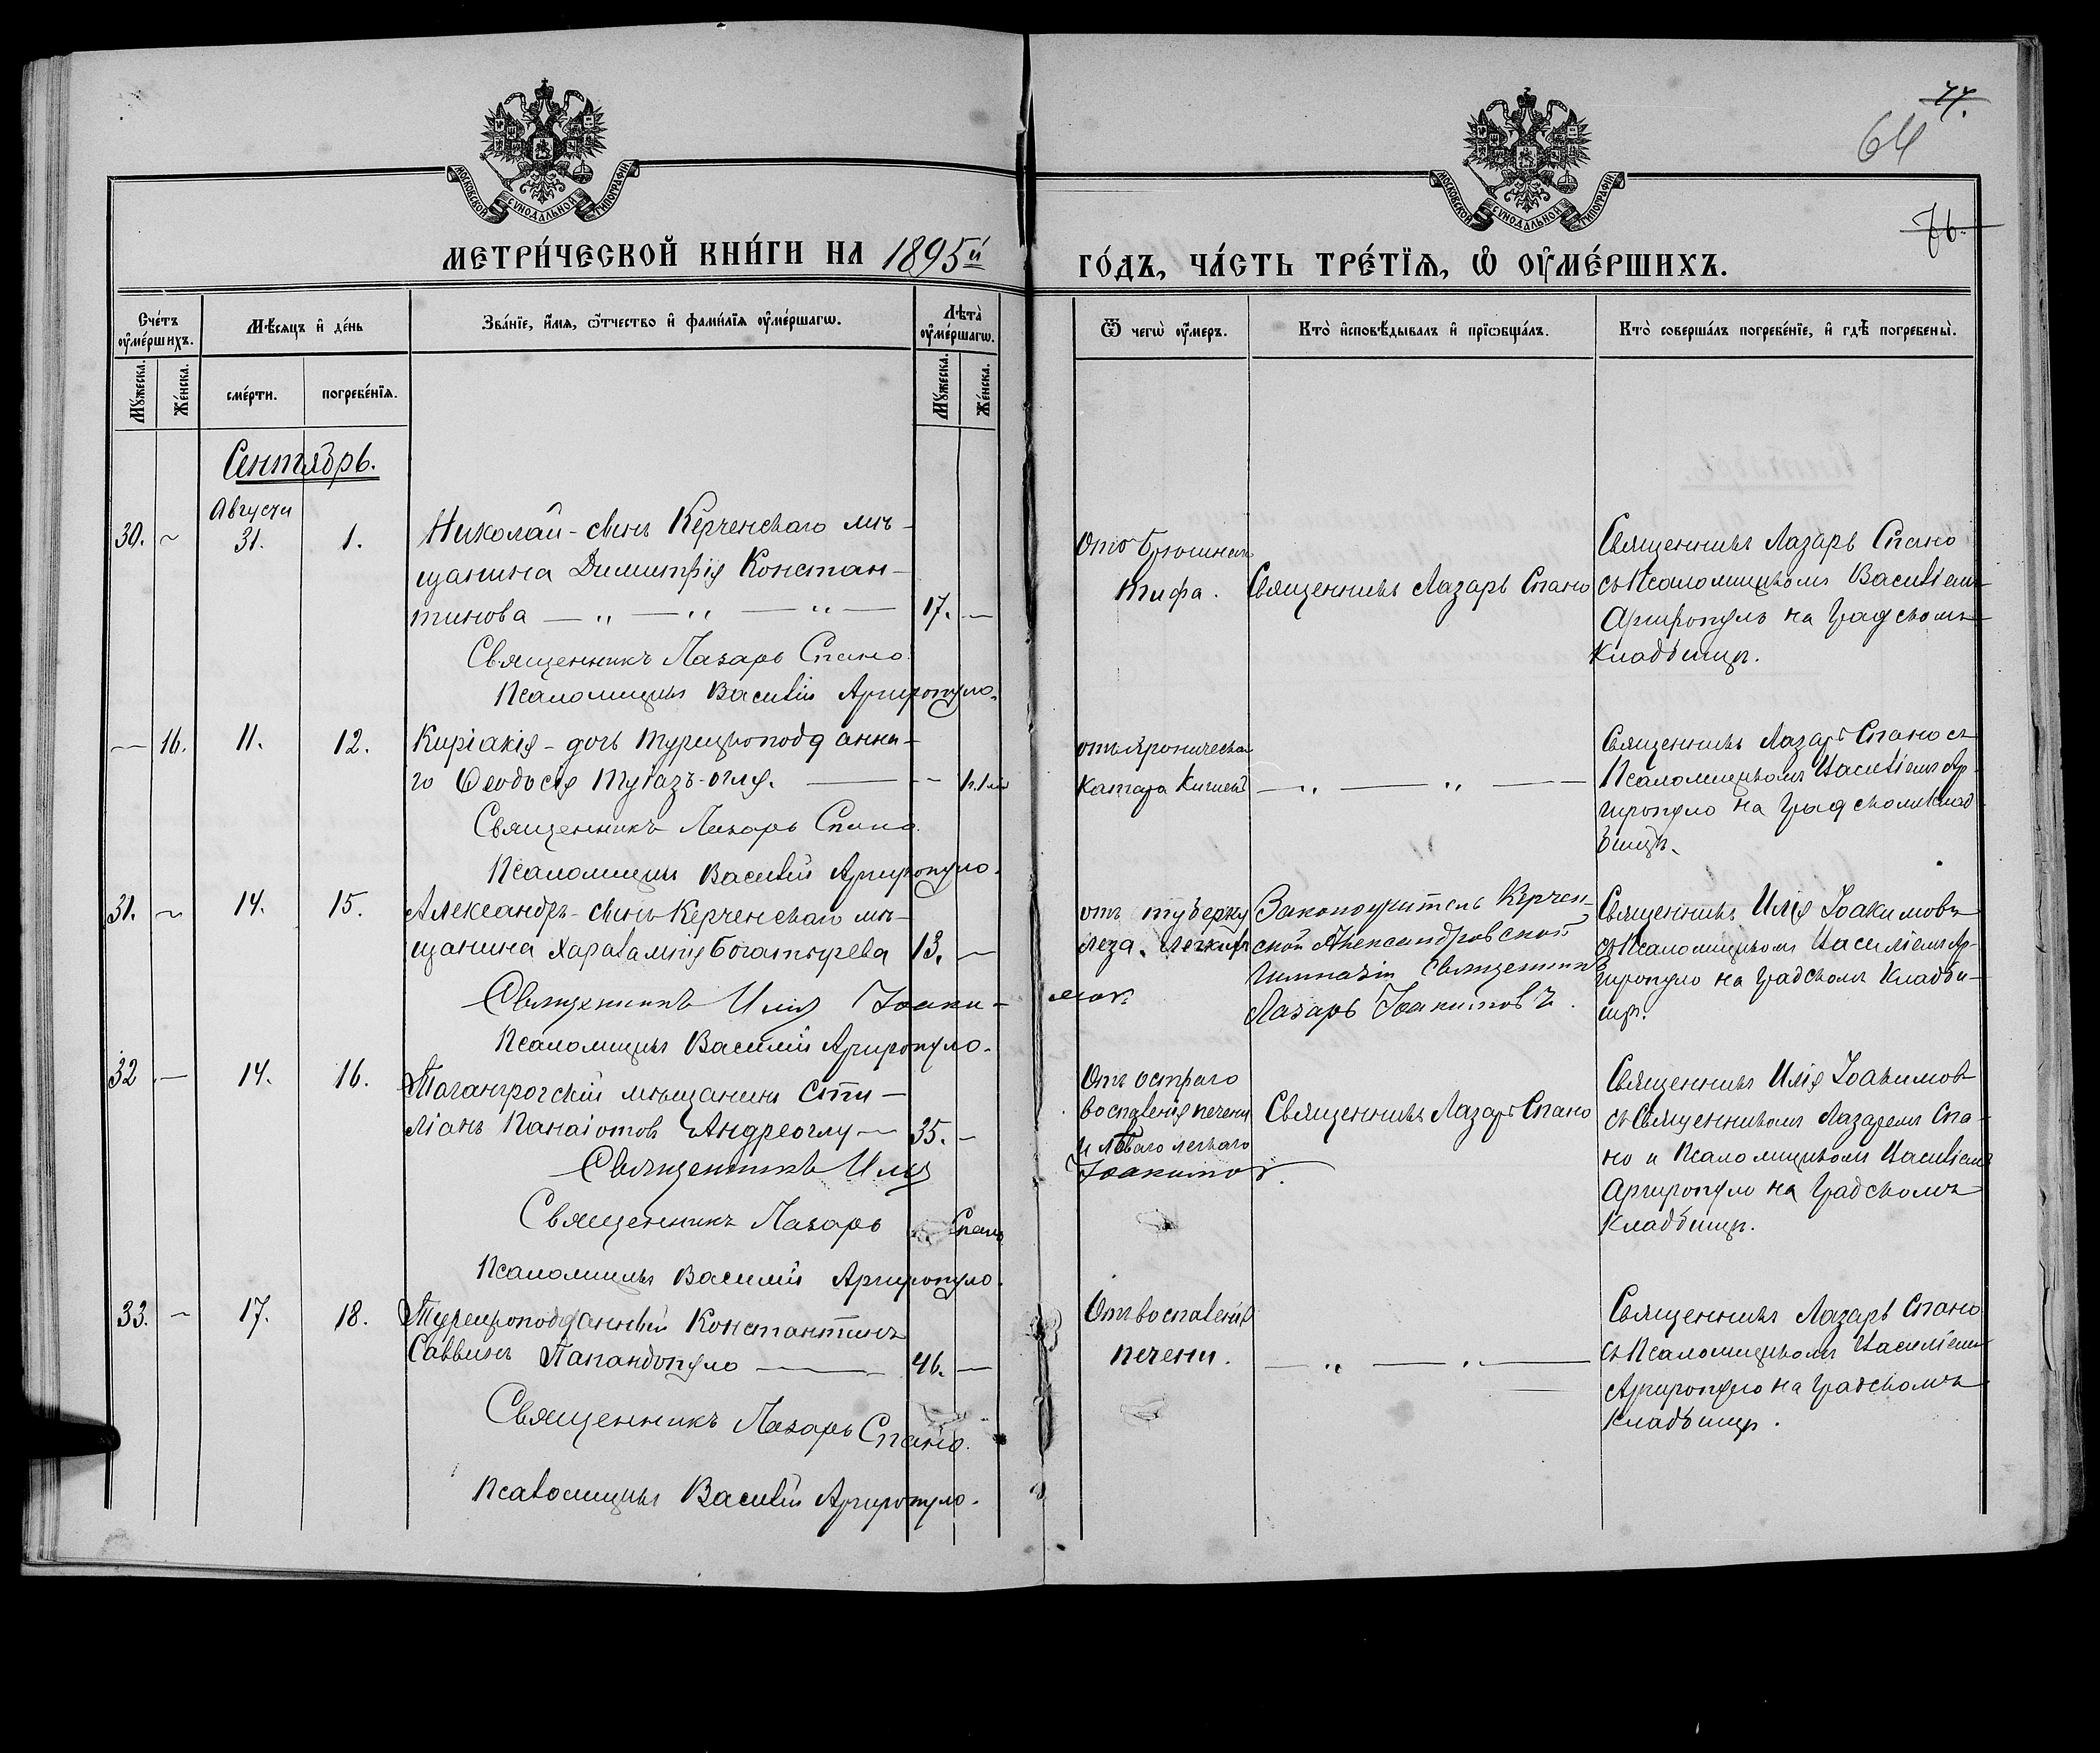 77.
64
76.
МОСКОВСКОЙ СѴНОДАЛЬНОЙ ТИПОГРАФІИ
МОСКОВСКОЙ СѴНОДАЛЬНОЙ ТИПОГРАФІИ
МЕТРИ́ЧЕСКОЙ КНИ́ГИ НА 1895й
ГО́ДЪ, ЧА́СТЬ ТРЕ́ТЇѦ, Ѡ ОУ҆МЕ́РШИХЪ.
Сче́тъ оу҆ме́ршихъ.
Мѣ́сяцъ и҆ де́нь
Зва́нїе, и҆́мѧ, ѻ҆́тчество и҆ фами́лїѧ оу҆ме́ршагѡ.
Лѣ́та̀ оу҆ме́ршагѡ.
Ѿ чегѡ̀ оу҆́меръ.
Кто̀ и҆сповѣ́дывалъ и҆ прїѡбща́лъ.
Кто̀ соверша́лъ погребе́нїе, и҆ гдѣ̀ погребены̀.
Му́жеска.
Же́нска.
сме́рти.
погребе́нїѧ.
Му́жеска.
Же́нска.
Сентябрь.
Августа
30. 31. 1. Николай - сынъ Керченскаго мѣ-
щанина Димитрія Констан-
тинова 17.
Священникъ Лазарь Спано.
Псаломщикъ Василій Аргиропуло.
Отъ брюшнаго
тифа.
Священникъ Лазарь Спано
Священникъ Лазарь Спано
съ Псаломщикомъ Василіемъ
Аргиропуло на Градскомъ
Кладбищѣ.
16. 11. 12. Киріакія - дочь турецкоподданна-
го Ѳеодосія
Священникъ Лазарь Спано.
Псаломщикъ Василій Аргиропуло.
отъ хроническаго
катара кишекъ
Священникъ Лазарь Спано съ
Псаломщикомъ Василіемъ Ар-
гиропуло на Градскомъ Клад-
бищѣ.
31. 14. 15. Александръ - сынъ Керченскаго мѣ-
щанина Харалампія Богатырева 13.
Священникъ Илія Іоаки-
мовъ
Псаломщикъ Василій Аргиропуло.
отъ туберку
леза легкихъ
Законоучитель Керчен-
ской Александровской
Гимназіи Священникъ
Лазарь Іоакимовъ.
Священникъ Илія Іоакимовъ
съ Псаломщикомъ Василіемъ Ар-
гиропуло на Градскомъ Кладби-
щѣ.
32 14. 16. Таганрогскій мѣщанинъ Сти-
ліанъ Панаіотовъ Андреоглу 35.
Священникъ Илія
Іоакимовъ.
Священникъ Лазарь Спано
Псаломщикъ Василій Аргиропуло.
Отъ остраго
воспаленія печени
и лѣваго легкаго
Священникъ Лазарь Спано
Священникъ Илія Іоакимовъ
съ Священникомъ Лазаремъ Спа-
но и Псаломщикомъ Василіемъ
Аргиропуло на Градскомъ
Кладбищѣ.
33. 17. 18. Турецкоподданный Константинъ
Саввинъ Папандопуло 46.
Священникъ Лазарь Спано.
Псаломщикъ Василій Аргиропуло.
Отъ воспаленія
печени.
Священникъ Лазарь Спано
съ Псаломщикомъ Василіемъ
Аргиропуло на Градскомъ
Кладбищѣ.